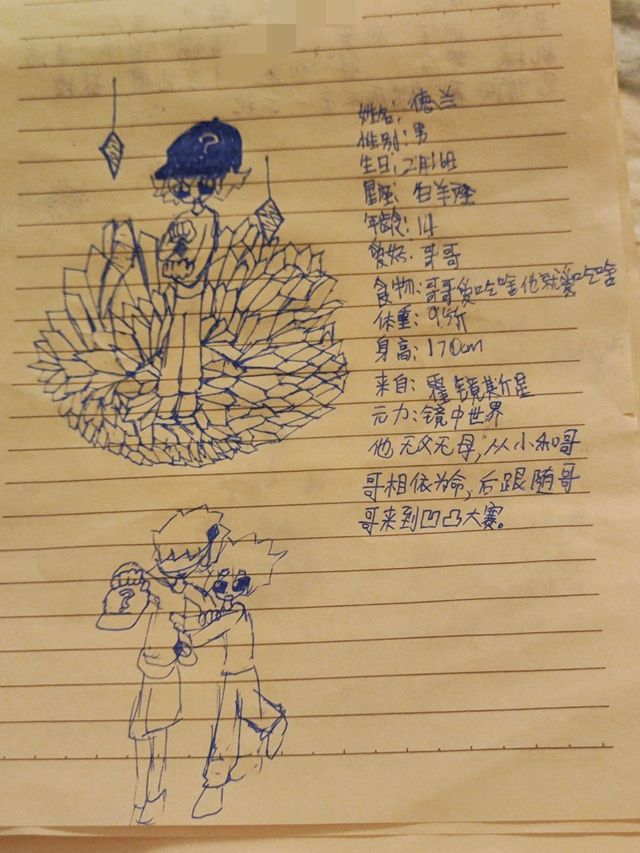 姓名：德兰
性别：男
生日：2月16日
星座：白羊座
年龄：14
爱好：哥哥
食物：哥哥爱吃啥他就爱吃啥
体重：95斤
身高：170cm
来自：镜斯星
元力：镜中世界
他无父无母，从小和哥
哥相依为命，后跟随哥
哥来到凹凸大赛。
?
?